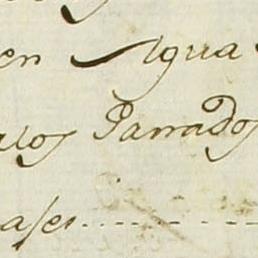 en Agua
los Parrados
ases